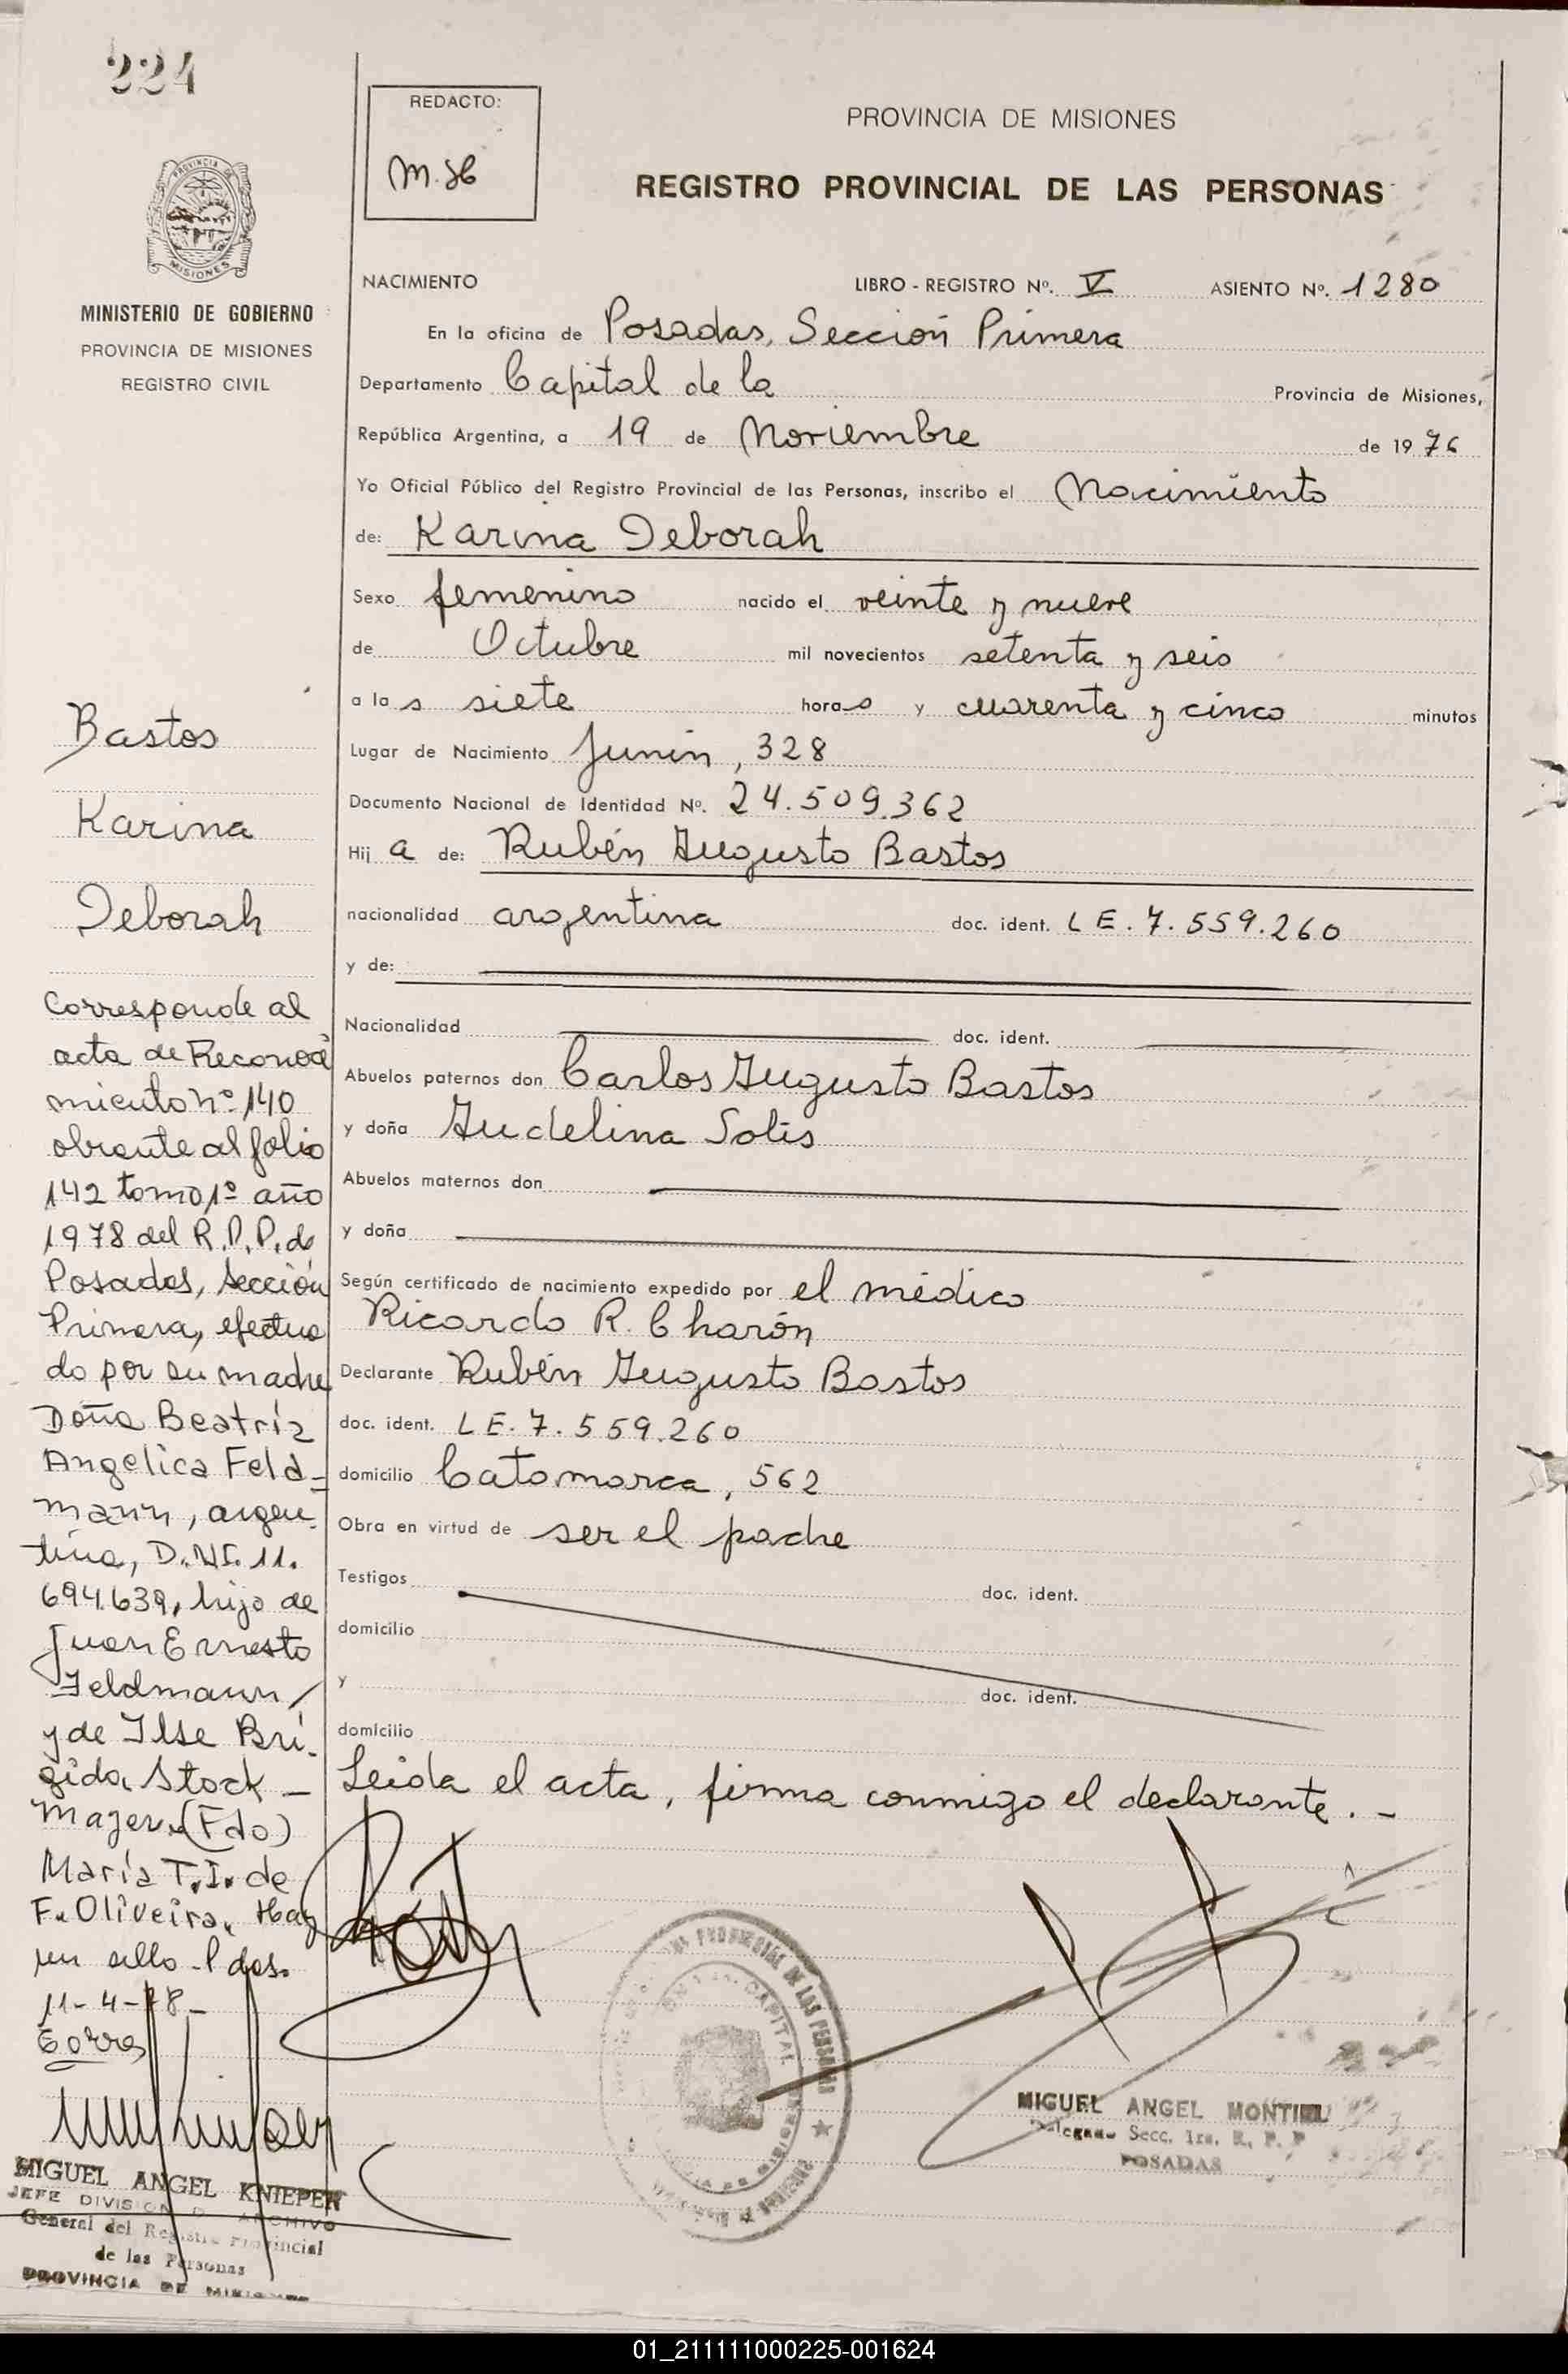 224
REDACTO:
M. H
PROVINCIA DE MISIONES
REGISTRO PROVINCIAL DE LAS PERSONAS
PROVINCIA DE
MISIONES
MINISTERIO DE GOBIERNO
PROVINCIA DE MISIONES
REGISTRO CIVIL
NACIMIENTO LIBRO - REGISTRO Nº. V ASIENTO Nº. 1280
En la oficina de Posadas, Sección Primera
Departamento Capital de la Provincia de Misiones,
República Argentina, a 19 de Noviembre de 1976
Yo Oficial Público del Registro Provincial de las Personas, inscribo el Nacimiento
de: Karina Deborah
Sexo femenino nacido el veinte y nueve
de Octubre mil novecientos setenta y seis
a las siete horas y cuarenta y cinco minutos
Lugar de Nacimiento Junín, 328
Documento Nacional de Identidad Nº. 24.509.362
Hija de: Rubén Augusto Bastos
nacionalidad argentina doc. ident. L E. 7. 559.260
y de:
Nacionalidad doc. ident.
Abuelos paternos don Carlos Augusto Bastos
y doña Audelina Solis
Abuelos maternos don
y doña
Según certificado de nacimiento expedido por el médico
Ricardo R. Charón
Declarante Rubén Augusto Bastos
doc. ident. L E. 7. 559.260
domicilio Catamarca, 562
Obra en virtud de ser el padre
Testigos doc. ident.
domicilio
y doc. ident.
domicilio
Leida el acta, firma conmigo el declarante. -
Bastos
Karina
Deborah
Corresponde al
acta de Reconoci
miento nº 140
obrante al folio
142 tomo 1º año
1978 del R.P.P. de
Posadas, sección
Primera, efectua
do por su madre
Doña Beatríz
Angelica Feld-
mann, argen-
tina, D.NI. 11.
694.639, hija de
Juan Ernesto
Feldmann/
y de Ilse Brí-
gida Stock-
majer. (Fdo)
María T.I. de
F. Oliveira. Hay
un sello - Pdas.
11-4-78-
MIGUEL ANGEL KNIEPER
JEFE DIVISION D. ARCHIVO
General del Registro Provincial
de las Personas
PROVINCIA DE MISIONES
PROVINCIAL DE LAS PERSONAS
CAPITAL
MIGUEL ANGEL MONTIEL
Delegado Secc. 1ra. R. P. P
POSADAS
01_211111000225-001624